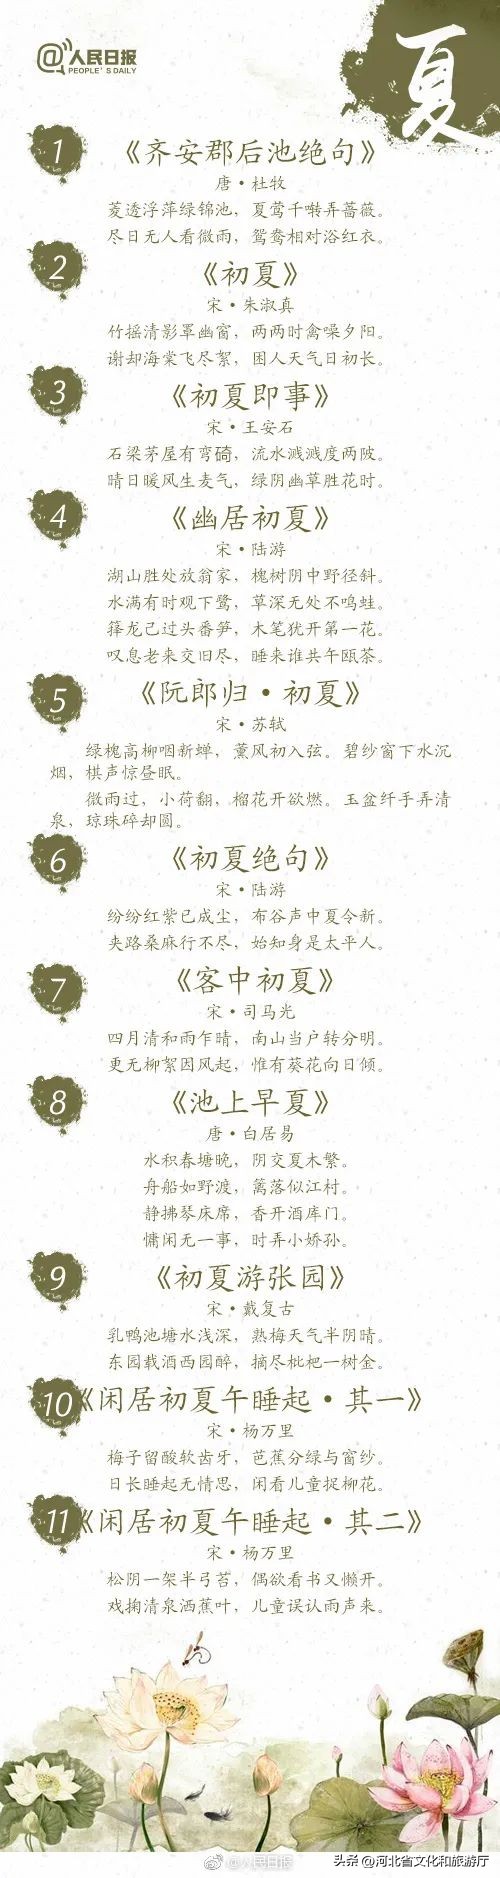 @人民日报
PEOPLE'S DAILY
夏
1
《齐安郡后池绝句》
唐·杜牧
菱透浮萍绿锦池，夏莺千啭弄蔷薇。
尽日无人看微雨，鸳鸯相对浴红衣。
2
《初夏》
宋·朱淑真
竹摇清影罩幽窗，两两时禽噪夕阳。
谢却海棠飞尽絮，困人天气日初长。
3
《初夏即事》
宋·王安石
石梁茅屋有弯碕，流水溅溅度两陂。
晴日暖风生麦气，绿阴幽草胜花时。
4
《幽居初夏》
宋·陆游
湖山胜处放翁家，槐树阴中野径斜。
水满有时观下鹭，草深无处不鸣蛙。
箨龙已过头番笋，木笔犹开第一花。
叹息老来交旧尽，睡来谁共午瓯茶。
5
《阮郎归·初夏》
宋·苏轼
绿槐高柳咽新蝉，薰风初入弦。碧纱窗下水沉
烟，棋声惊昼眠。
微雨过，小荷翻，榴花开欲燃。玉盆纤手弄清
泉，琼珠碎却圆。
6
《初夏绝句》
宋·陆游
纷纷红紫已成尘，布谷声中夏令新。
夹路桑麻行不尽，始知身是太平人。
7
《客中初夏》
宋·司马光
四月清和雨乍晴，南山当户转分明。
更无柳絮因风起，惟有葵花向日倾。
8
《池上早夏》
唐·白居易
水积春塘晚，阴交夏木繁。
舟船如野渡，篱落似江村。
静拂琴床席，香开酒库门。
慵闲无一事，时弄小娇孙。
9
《初夏游张园》
宋·戴复古
乳鸭池塘水浅深，熟梅天气半阴晴。
东园载酒西园醉，摘尽枇杷一树金。
10
《闲居初夏午睡起·其一》
宋·杨万里
梅子留酸软齿牙，芭蕉分绿与窗纱。
日长睡起无情思，闲看儿童捉柳花。
11
《闲居初夏午睡起·其二》
宋·杨万里
松阴一架半弓苔，偶欲看书又懒开。
戏掬清泉洒蕉叶，儿童误认雨声来。
@人民日报
头条 @河北省文化和旅游厅